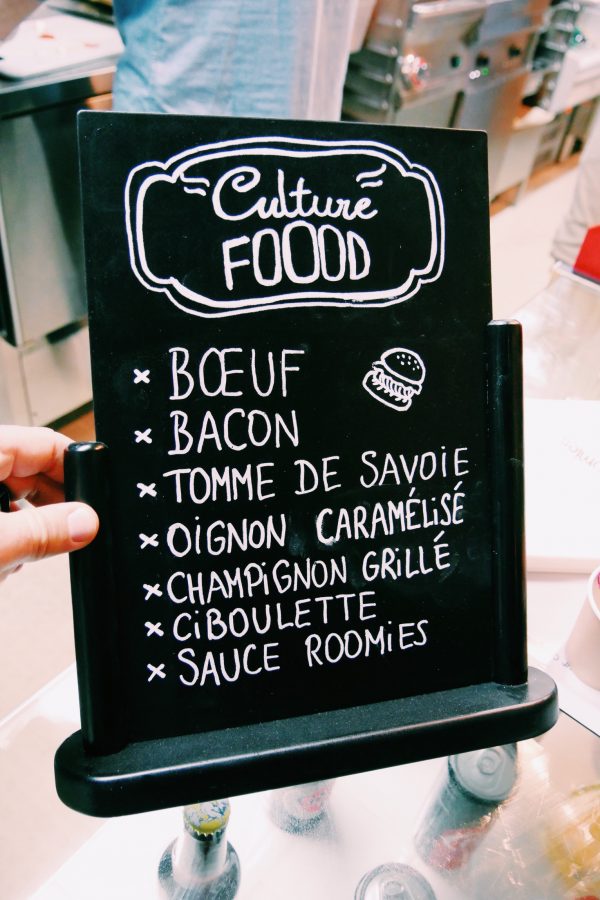 Culture
FOOOD
× BŒUF
× BACON
× TOMME DE SAVOIE
× OiGNON CARAMÉLiSÉ
× CHAMPiGNON GRiLLÉ
× CiBOULETTE
× SAUCE ROOMiES